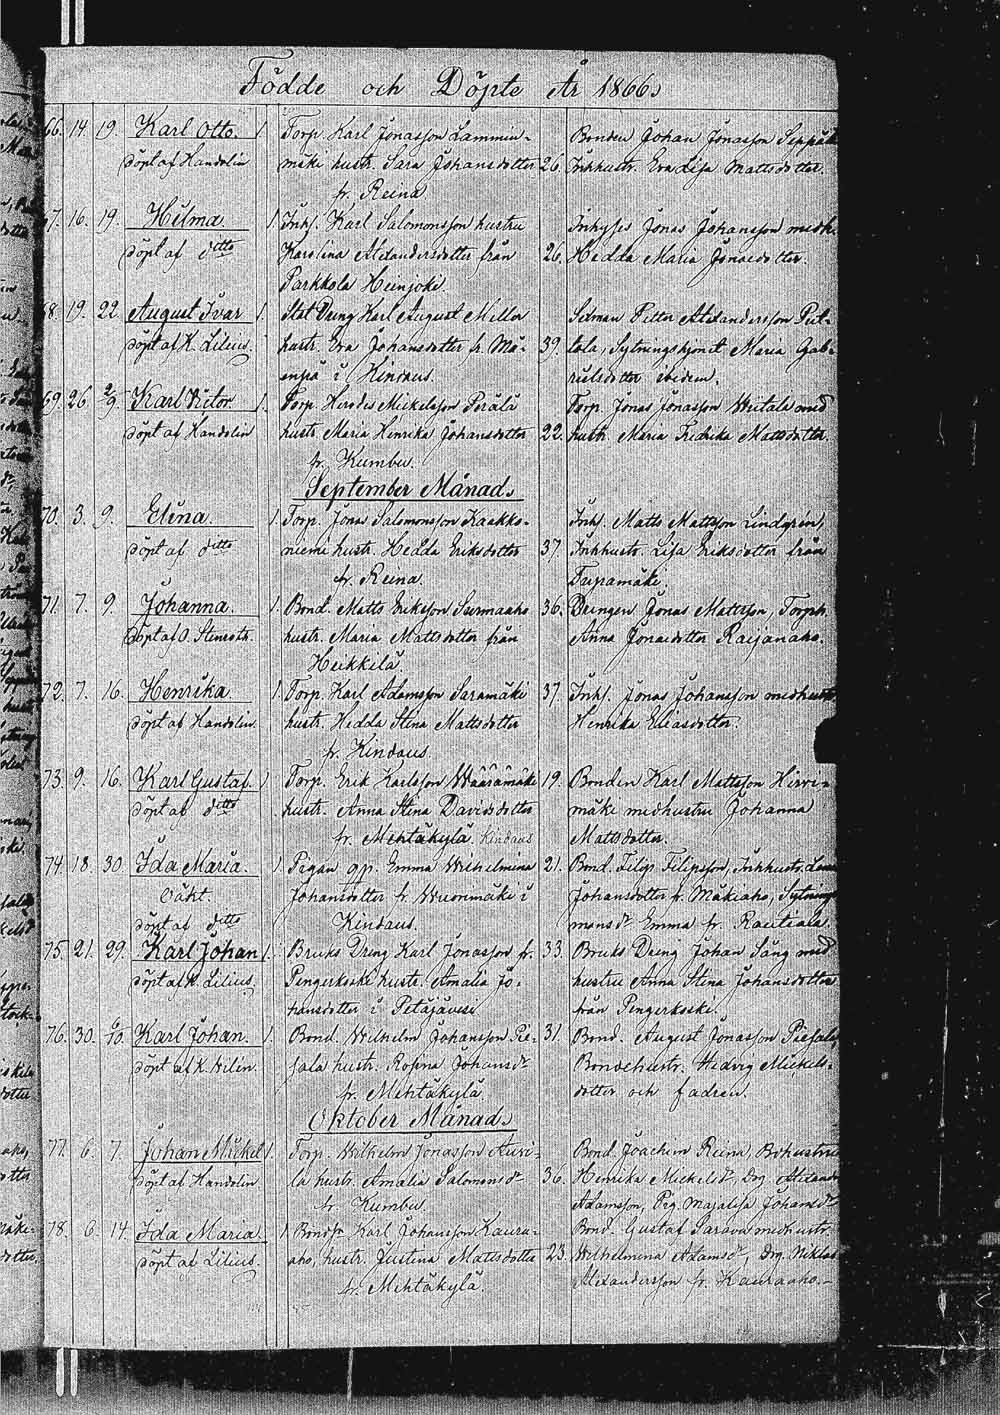 Födde och Döpte År 1866.
66. 14. 19. Karl Otto. 1. Torp. Karl Jonasson Lammin- Bonden Johan Jonasson
döpt af Handolin mäki hustr. Sara Johansdotter 26. Inhhustr. Eva Lisa Mattsdotter.
fr. Reina.
67. 16. 19. Hilma. 1. Inhs. Karl Salomonsson hustru Inhyses Jonas Johansson medh.
döpt af ditto Karolina Alexandersdotter från 26. Hedda Maria Jonaedotter.
Parkkola Heinjoki.
68. 19. 22. August Ivar 1. Stat Dreng Karl August Miller Petter Alexandersson
döpt af K. Lilius. hustr. Eva Johansdotter fr. Mä- 39. Sytningshjonet Maria Gab-
enpä i Hindaus. rielsdotter ibidem.
69. 26 2/9. Karl Victor. 1. Torp. Herodes Mickelsson Perälä Torp. Jonas Jonasson med
döpt af Handolin hustr. Maria Henrika Johansdotter 22. hustr. Maria Fredrika Mattsdotter.
fr. Kumbu.
September Månad.
70. 3. 9. Elina. 1. Torp. Jonas Salomonsson Kaakko- Inhs. Matts Mattsson Lindgrén,
döpt af ditto niemi hustr. Hedda Eriksdotter 37. Inhhustr. Lisa Eriksdotter från
fr. Reina. Taipamäki.
71. 7. 9. Johanna. 1. Bond. Matts Eriksson Surmaaho 36. Drengen Jonas Mattsson, Torph.
döpt af O. Stenroth. hustr. Maria Mattsdotter från Anna Jonaedotter Raijanaho.
Heikkilä.
72. 7. 16. Henrika 1. Torp. Karl Adamsson Saramäki 37. Inhs. Jonas Johansson medhustr
döpt af Handolin. hustr. Hedda Stina Mattsdotter Henrika Eliasdotter.
fr. Kindaus.
73. 9. 16. Karl Gustaf. 1 Torp. Erik Karlsson Wäärämäki 19. Bonden Karl Mattsson Hirvi-
döpt af ditto hustr. Anna Stina Davidsdotter mäki medhustru Johanna
fr. Mehtäkylä. Kindaus Mattsdotter.
74. 18. 30. Ida Maria. 1. Pigan og. Emma Wilhelmina 21. Bond. Filip Filipsson, Inhhustr.
Oäkt. Johansdotter fr. Wuorimäki i Johansdotter fr. Mäkiaho, Sytnings
döpt af ditto Kindaus. Emma fr. Rautiala.
75. 21. 29. Karl Johan 1. Bruks Dreng Karl Jonasson fr. 33. Bruks Dreng Johan Säng med
döpt af K. Lilius. Pengerkoski hustr. Amalia Jo- hustru Anna Stina Johansdotter
hansdotter i Petäjävesi från Pengerkoski.
76. 30. 6/10. Karl Johan. 1. Bond. Wilhelm Johansson Pie- 31. Bond. August Jonasson Piesala
döpt af K. Wilén. sala hustr. Rosina Johansdr Bondehustr. Hedvig Mickels-
fr. Mehtäkylä. dotter och fadren.
Oktober Månad.
77. 6. 7. Johan Mickel 1. Torp. Wilhelm Jonasson Auvi- Bond. Joachim Reina, Bdhustru
döpt af Handolin la hustr. Amalia Salomonsdr 36. Henrika Mickelsdr, Drg. Alexand
fr. Kumbu. Adamsson, Pig. Majalisa Johansdr
78. 6. 14. Ida Maria 1 Bondsn Karl Johansson Kaura- Bond. Gustaf Sarava medhustr.
döpt af Lilius. aho, hustr. Justina Mattsdotter 23. Wilhelmina Adamsdr, Drg. Niklas
fr. Mehtäkylä. Alexandersson fr. Kauraaho.